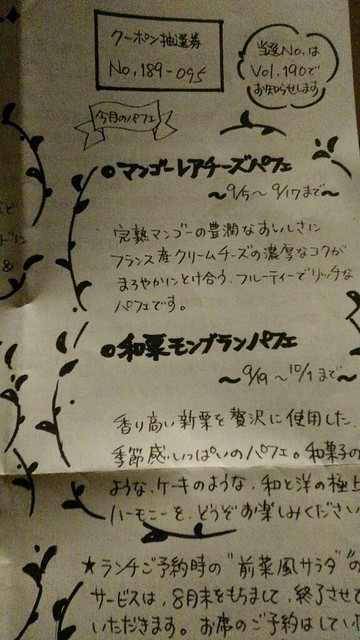 クーポン抽選券
No. 189-095
当選No.は
Vol.190で
お知らせします
今月のパフェ
●マンゴーレアチーズパフェ
〜9/5〜9/17まで〜
完熟マンゴーの豊潤なおいしさに
フランス産クリームチーズの濃厚なコクが
まろやかにとけ合う、フルーティーでリッチな
パフェです。
●和栗モンブランパフェ
〜9/19〜10/1まで〜
香り高い新栗を贅沢に使用した、
季節感いっぱいのパフェ。和菓子の
ような、ケーキのような、和と洋の極上
ハーモニーを、どうぞお楽しみください
★ランチご予約時の"前菜風サラダ"の
サービスは、8月末をもちまして、終了させて
いただきます。お席のご予約はしてい